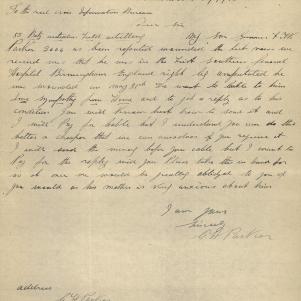 To the red cross Information Bureau
Dear Sir
53 Baty australian field artillery My son Gunner F. H.
Parker 3004 as been reported wounded the last news we
received was that he was in the First Southern general
Hospital Birmingham England right leg amputated he
was wounded in may 31st I want to cable to him
some sympathy from Home and to get a reply as to his
condition you will know best how to done it and
I will Pay for Cable that I understand you can do this
better & cheaper that we can ourselves if you require it
I will send the money before you cable, but I want to
Pay for the reply will you Please take this in hand for
us at once we would be greatly obliged to you if
you would as his mother is very anxious about him
I am yours
Sincerely
C. H. Parker
address
C. H. Parker